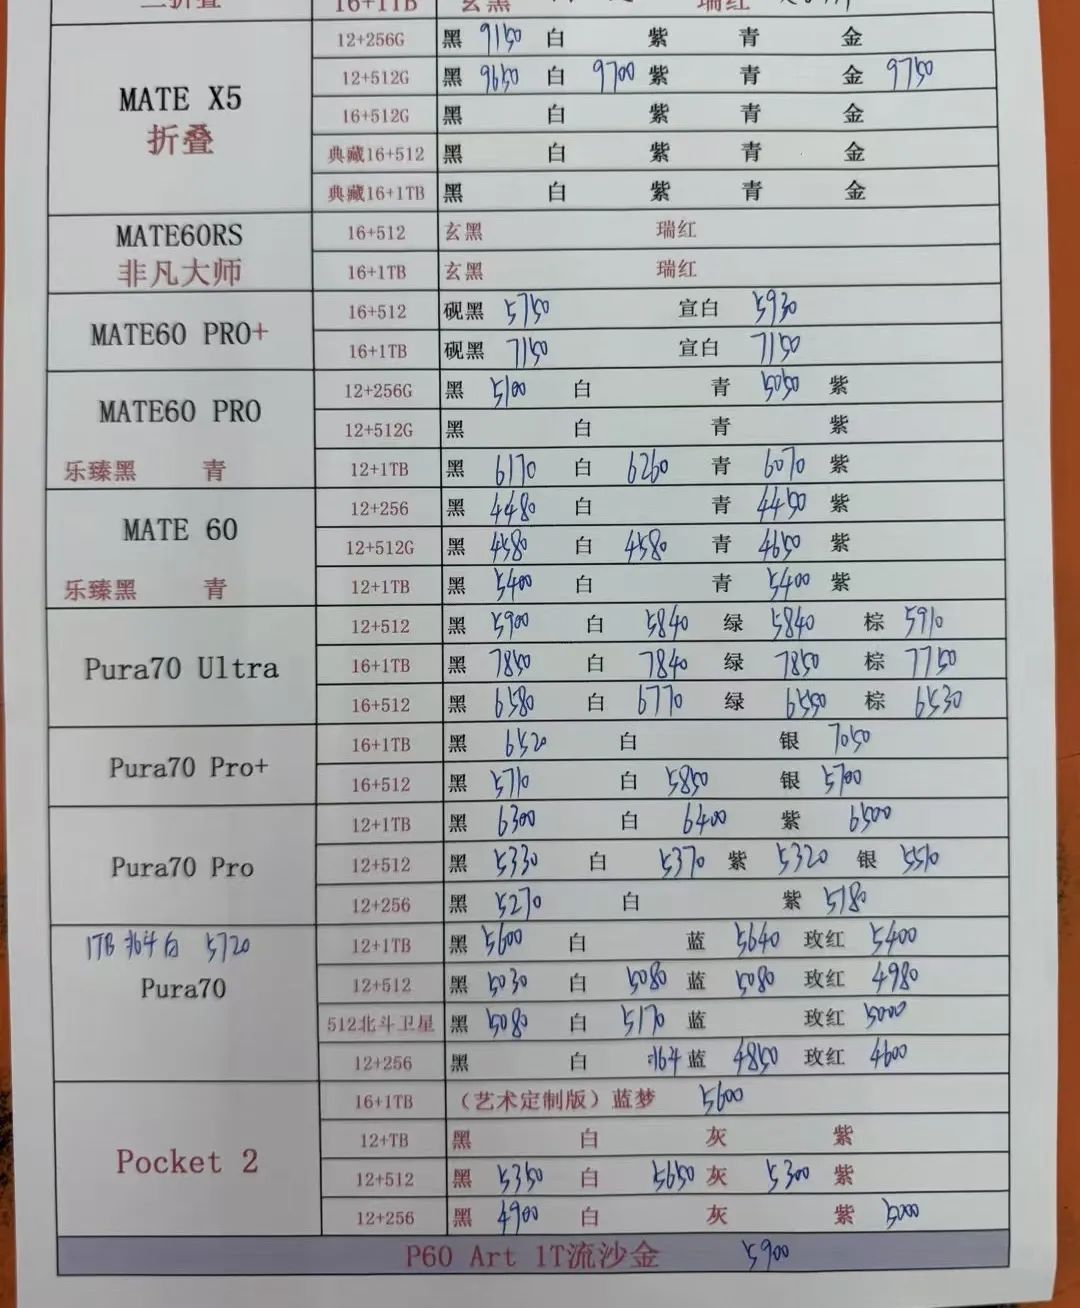 16+1TB 玄黑 瑞红
MATE X5
折叠
12+256G 黑 9150 白 紫 青 金
12+512G 黑 9650 白 9700 紫 青 金 9750
16+512G 黑 白 紫 青 金
典藏16+512 黑 白 紫 青 金
典藏16+1TB 黑 白 紫 青 金
MATE60RS
非凡大师
16+512 玄黑 瑞红
16+1TB 玄黑 瑞红
MATE60 PRO+
16+512 砚黑 5750 宣白 5930
16+1TB 砚黑 7150 宣白 7150
MATE60 PRO
乐臻黑 青
12+256G 黑 5100 白 青 5050 紫
12+512G 黑 白 青 紫
12+1TB 黑 6170 白 6260 青 6070 紫
MATE 60
乐臻黑 青
12+256 黑 4480 白 青 4450 紫
12+512G 黑 4580 白 4580 青 4650 紫
12+1TB 黑 5400 白 青 5400 紫
Pura70 Ultra
12+512 黑 5900 白 5840 绿 5840 棕 5910
16+1TB 黑 7850 白 7840 绿 7850 棕 7750
16+512 黑 6580 白 6770 绿 6550 棕 6530
Pura70 Pro+
16+1TB 黑 6520 白 银 7050
16+512 黑 5710 白 5850 银 5700
Pura70 Pro
12+1TB 黑 6300 白 6400 紫 6500
12+512 黑 5330 白 5370 紫 5320 银 5510
12+256 黑 5270 白 紫 5180
1TB 北斗白 5720
Pura70
12+1TB 黑 5600 白 蓝 5640 玫红 5400
12+512 黑 5030 白 5080 蓝 5080 玫红 4980
512北斗卫星 黑 5080 白 5170 蓝 玫红 5000
12+256 黑 白 北斗 蓝 4850 玫红 4600
Pocket 2
16+1TB （艺术定制版）蓝梦 5600
12+TB 黑 白 灰 紫
12+512 黑 5350 白 5650 灰 5300 紫
12+256 黑 4900 白 灰 紫 5000
P60 Art 1T流沙金 5900